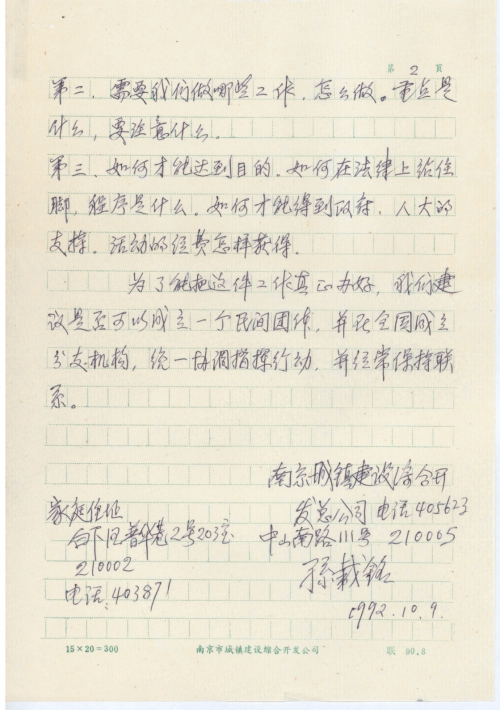 第 2 頁
第二．需要我们做哪些工作．怎么做。重点是
什么，要注意什么．
第三．如何才能达到目的．如何在法律上给住
脚，程序是什么．如何才能得到政府．人大的
支撑．活动的经费怎样获得．
为了能把这件工作真正办好，我们建
议是否可以成立一个民间团体，并在全国成立
分支机构，统一协调指挥行动，并经常保持联
系。
南京城镇建设综合开
发总公司 电话405623
中山南路111号 210005
孙载铭
1992.10.9.
家庭住址
白下区普华巷2号203室
210002
电话：403871
15×20=300 南京市城镇建设综合开发公司 联 90.8